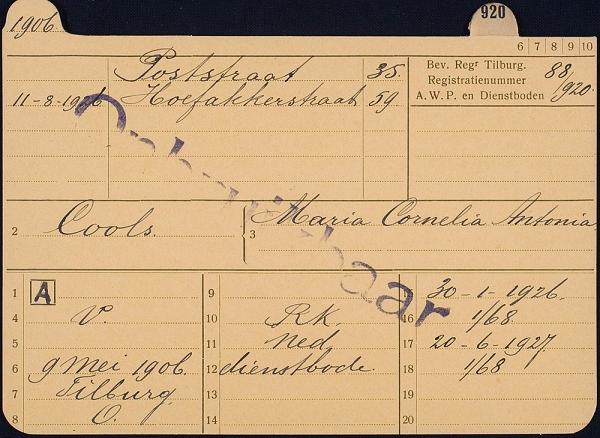 1906
920
6 7 8 9 10
Poststraat 35.
11-8-1926 Hoefakkerstraat 59
Bev. Regr Tilburg.
Registratienummer
A.W.P. en Dienstboden
88/920.
Onbruikbaar
2 Cools.
3 Maria Cornelia Antonia
1 A
4 V.
5
6 9 Mei 1906.
7 Tilburg.
8 O.
9
10 R.K.
11 ned
12 dienstbode.
13
14
15 30-1-1926.
16 1/68
17 20-6-1927.
18 1/68
19
20